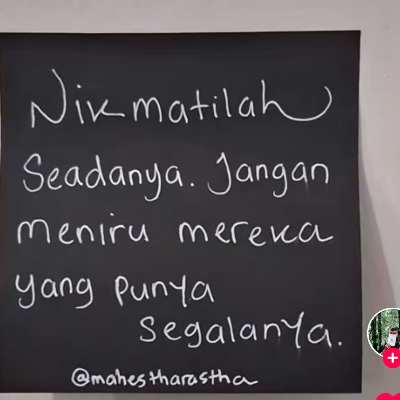 Nikmatilah
Seadanya. Jangan
meniru mereka
yang punya
segalanya.
@mahestharastha